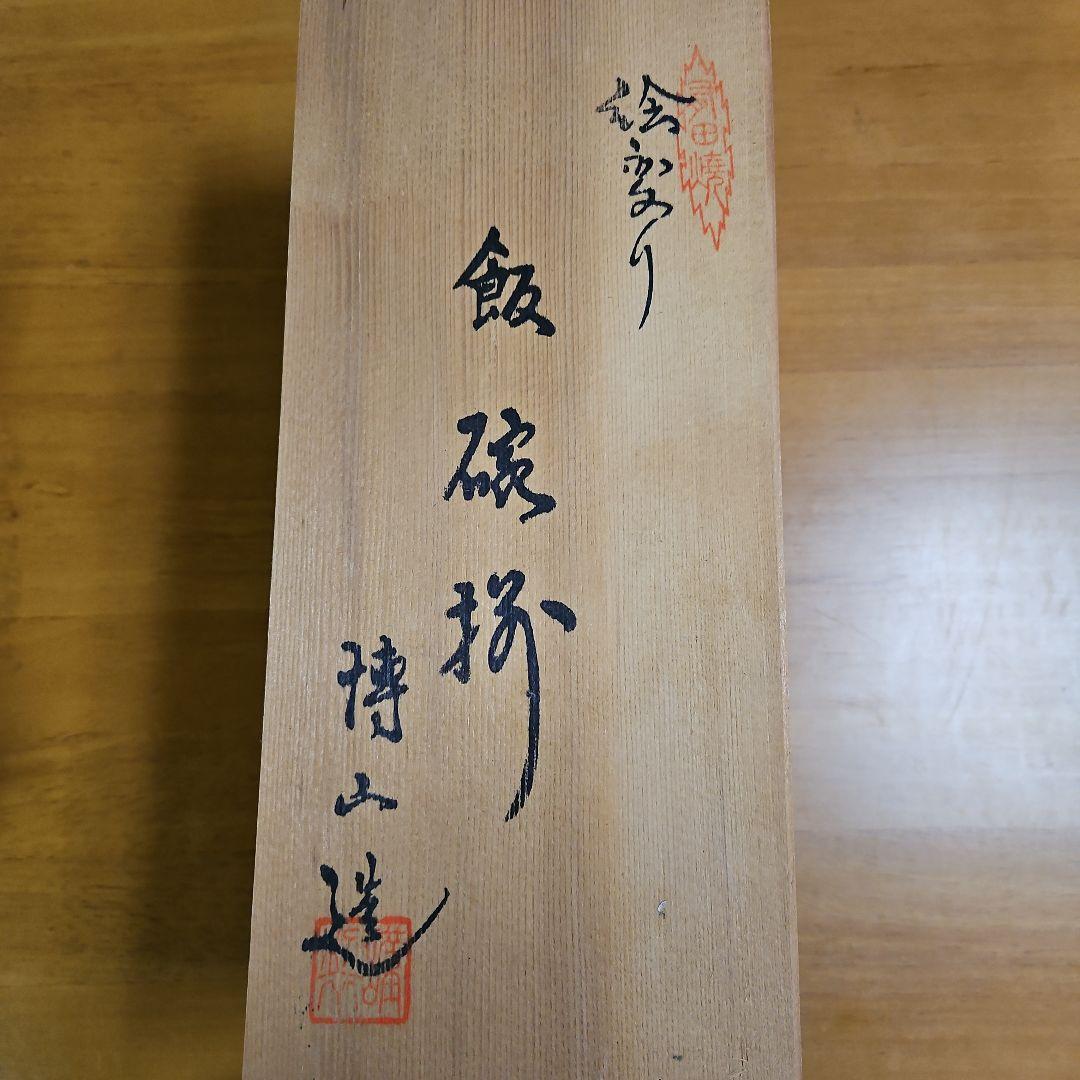 有田焼
絵変り
飯碗揃
博山造